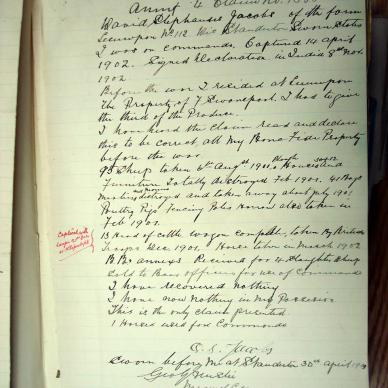 Annf 4 Claim No.
David Stephanus Jacobs of the farm
Leeuwpan No 112 Dis Standerton Sworn States
I was on commando. Captured 14 April
1902. Signed Declaration in India 8th Nov
1902
Before the war I resided at Leeuwpan
The Property of J Swanepoel. I had to give
the third of the Produce.
I have heard the claim read and declare
this to be correct all My Bona Fide Property
before the war
95 Sheep taken 6th Augst 1901. House and
Furniture Totally destroyed Feb 1901. 41 Bags
Mealies destroyed and taken away about July 1901
Poultry Pigs Fencing Poles Harrow also taken in
Feb 1901.
13 Head of cattle wagon complete, taken by British
Troops Dec 1901. Horse taken in March 1902
B.B. annexys Received for 4 Slaughter Sheep
Sold to Boer officers for use of Commando
I have recovered nothing
I have now nothing in my Possession
This is the only claim presented
1 Horse used for Commando
D. S. Jacobs
Sworn before me at Standerton 30th April
Captured with